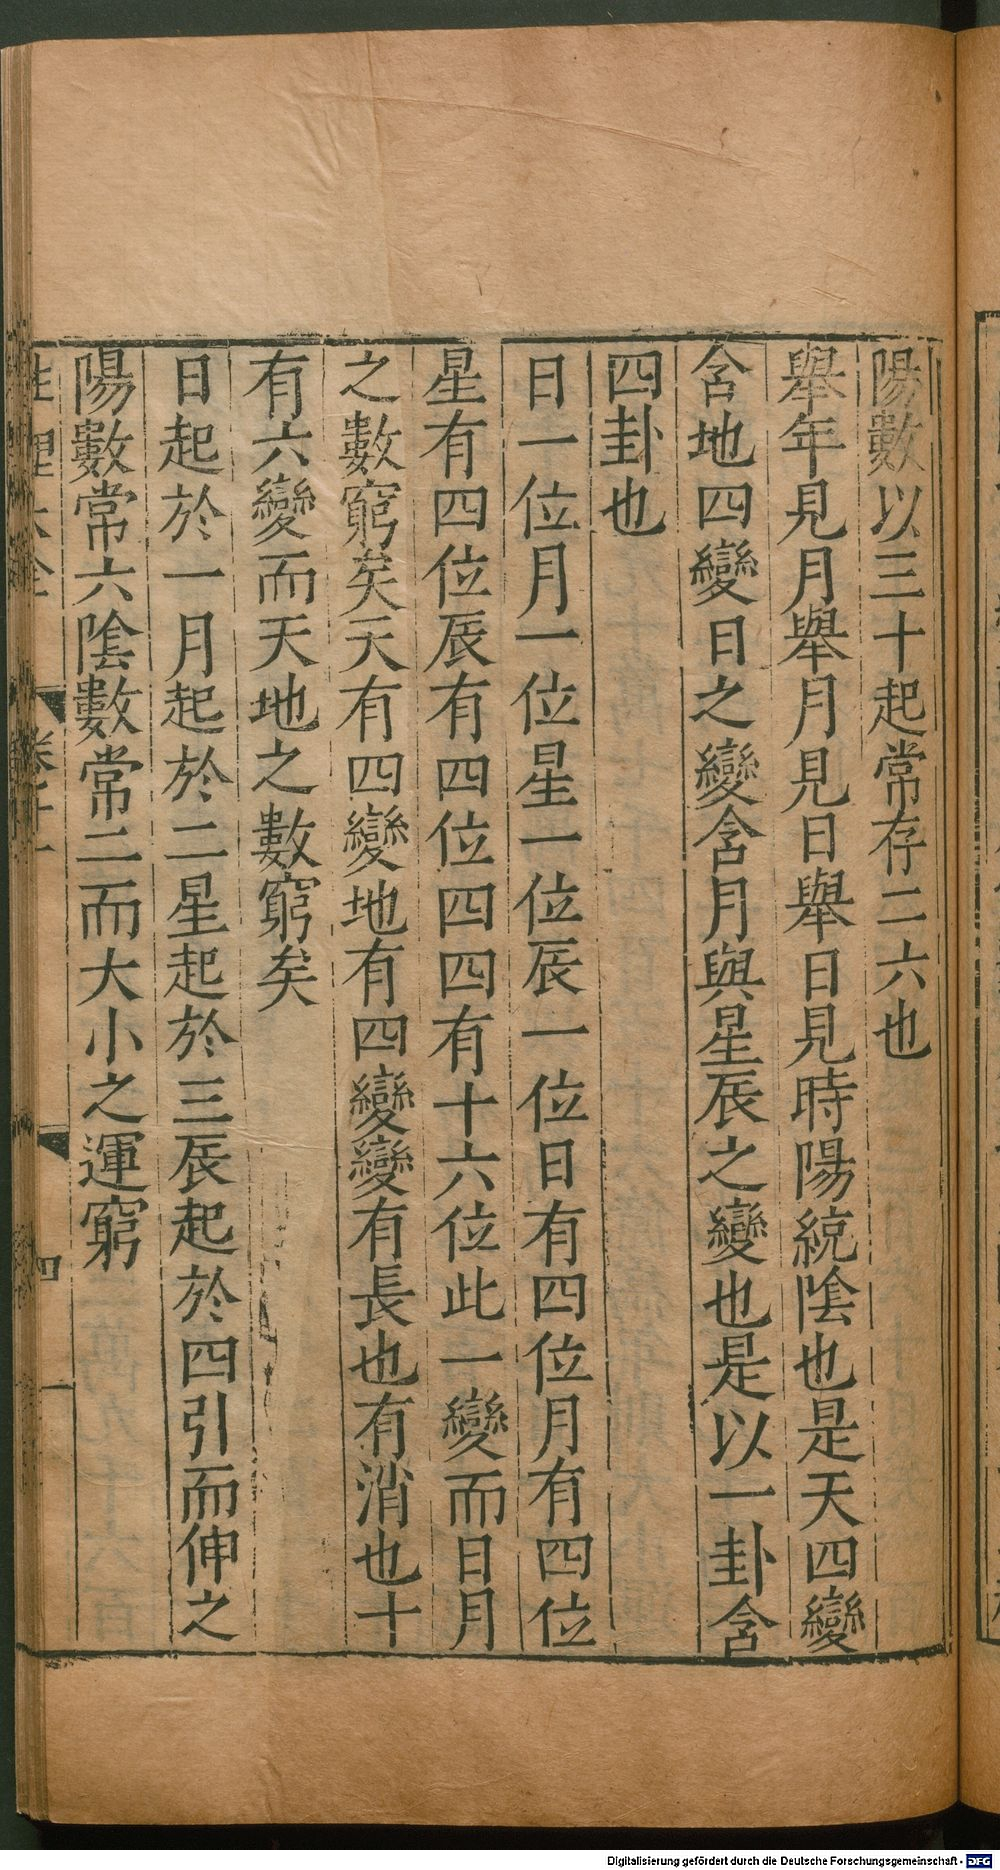 陽數以三十起常存二六也
舉年見月舉月見日舉日見時陽統陰也是天四變
含地四變日之變含月與星辰之變也是以一卦含
四卦也
日一位月一位星一位辰一位日有四位月有四位
星有四位辰有四位四四有十六位此一變而日月
之數窮矣天有四變地有四變變有長也有消也十
有六變而天地之數窮矣
日起於一月起於二星起於三辰起於四引而伸之
陽數常六陰數常二而大小之運窮
性理大全
卷十一
四
Digitalisierung gefördert durch die Deutsche Forschungsgemeinschaft - DFG